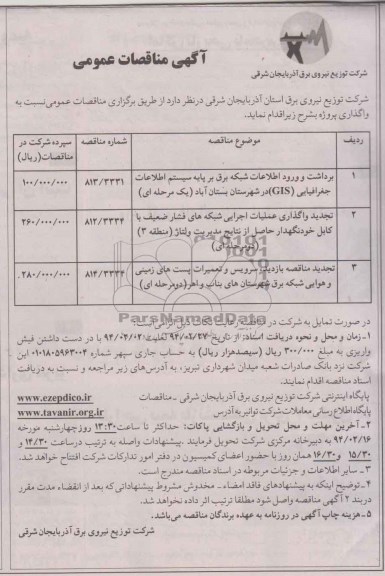 شرکت توزیع نیروی برق آذربایجان شرقی
آگهی مناقصات عمومی
شرکت توزیع نیروی برق استان آذربایجان شرقی درنظر دارد از طریق برگزاری مناقصات عمومی نسبت به
واگذاری پروژه بشرح زیر اقدام نماید.
ردیف موضوع مناقصه شماره مناقصه سپرده شرکت در مناقصات(ریال)
۱ برداشت و ورود اطلاعات شبکه برق بر پایه سیستم اطلاعات ۸۱۳/۳۳۳۱ ۱۰۰/۰۰۰/۰۰۰
جغرافیایی (GIS)در شهرستان بستان آباد (یک مرحله ای)
۲ تجدید واگذاری عملیات اجرایی شبکه های فشار ضعیف با ۸۱۲/۳۳۳۴ ۲۶۰/۰۰۰/۰۰۰
کابل خودنگهدار حاصل از نتایج مدیریت ولتاژ (منطقه ۳)
(دومرحله ای)
۳ تجدید مناقصه بازدید، سرویس و تعمیرات پست های زمینی ۸۱۴/۳۳۳۴ ۲۸۰/۰۰۰/۰۰۰
و هوایی شبکه برق شهرستان های بناب و اهر(دومرحله ای)
ParsNamadData
در صورت تمایل به شرکت در مناقصه رعایت نکات ذیل الزامی است:
۱-زمان و محل و نحوه دریافت اسناد: از تاریخ لغایت ۹۴/۰۲/۰۲ با در دست داشتن فیش
واریزی به مبلغ ۳۰۰/۰۰۰ ریال (سیصدهزار ریال) به حساب جاری سپهر شماره ۰۱۰۱۸۰۵۹۶۳۰۰۴
شرکت نزد بانک صادرات شعبه میدان شهرداری تبریز، به آدرس‌های زیر مراجعه و نسبت به دریافت
اسناد مناقصه اقدام نمایند.
پایگاه اینترنتی شرکت توزیع نیروی برق آذربایجان شرقی - مناقصات www.ezepdico.ir
پایگاه اطلاع رسانی معاملات شرکت توانیر به آدرس www.tavanir.org.ir
۲-آخرین مهلت و محل تحویل و بازگشایی پاکات: حداکثر تا ساعت ۱۳:۳۰ روز چهارشنبه مورخه
۹۴/۰۲/۱۶ به دبیرخانه مرکزی شرکت تحویل فرمایند .پیشنهادات واصله به ترتیب درساعت ۱۴/۳۰ و
۱۵/۳۰ و ۱۶/۳۰ همان روز با حضور اعضای کمیسیون در دفتر امور تدارکات شرکت افتتاح خواهد شد.
۳- سایر اطلاعات و جزئیات مربوطه در اسناد مناقصه مندرج است.
۴-توضیح اینکه به پیشنهادهای فاقد امضاء - مخدوش مشروط پیشنهاداتی که بعد از انقضاء مدت مقرر
دربند ۲ آگهی مناقصه واصل شود مطلقا ترتیب اثر داده نخواهد شد.
۵-هزینه چاپ آگهی در روزنامه به عهده برندگان مناقصه می‌باشد.
شرکت توزیع نیروی برق آذربایجان شرقی